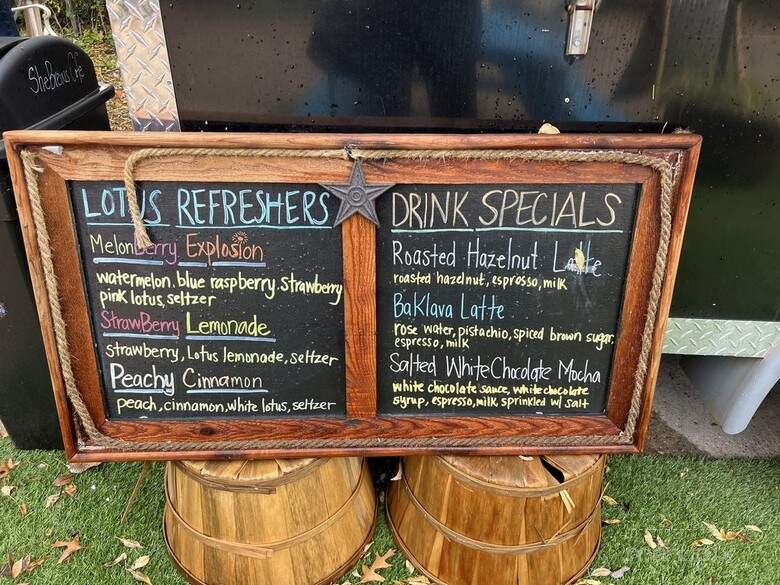 SheBrews Cafe
LOTUS REFRESHERS
MelonBerry Explosion
watermelon, blue raspberry, strawberry
pink lotus, seltzer
StrawBerry Lemonade
strawberry, Lotus lemonade, seltzer
Peachy Cinnamon
peach, cinnamon, white lotus, seltzer
DRINK SPECIALS
Roasted Hazelnut Latte
roasted hazelnut, espresso, milk
BaKlava Latte
rose water, pistachio, spiced brown sugar,
espresso, milk
Salted White Chocolate Mocha
white chocolate sauce, white chocolate
syrup, espresso, milk, sprinkled w/ salt